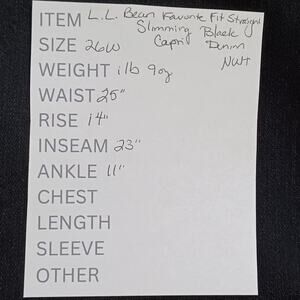 ITEM L.L. Bean Favorite Fit Straight
Slimming Black
Capri Denim
SIZE 26W NWT
WEIGHT 1lb 9oz
WAIST 25"
RISE 14"
INSEAM 23"
ANKLE 11"
CHEST
LENGTH
SLEEVE
OTHER